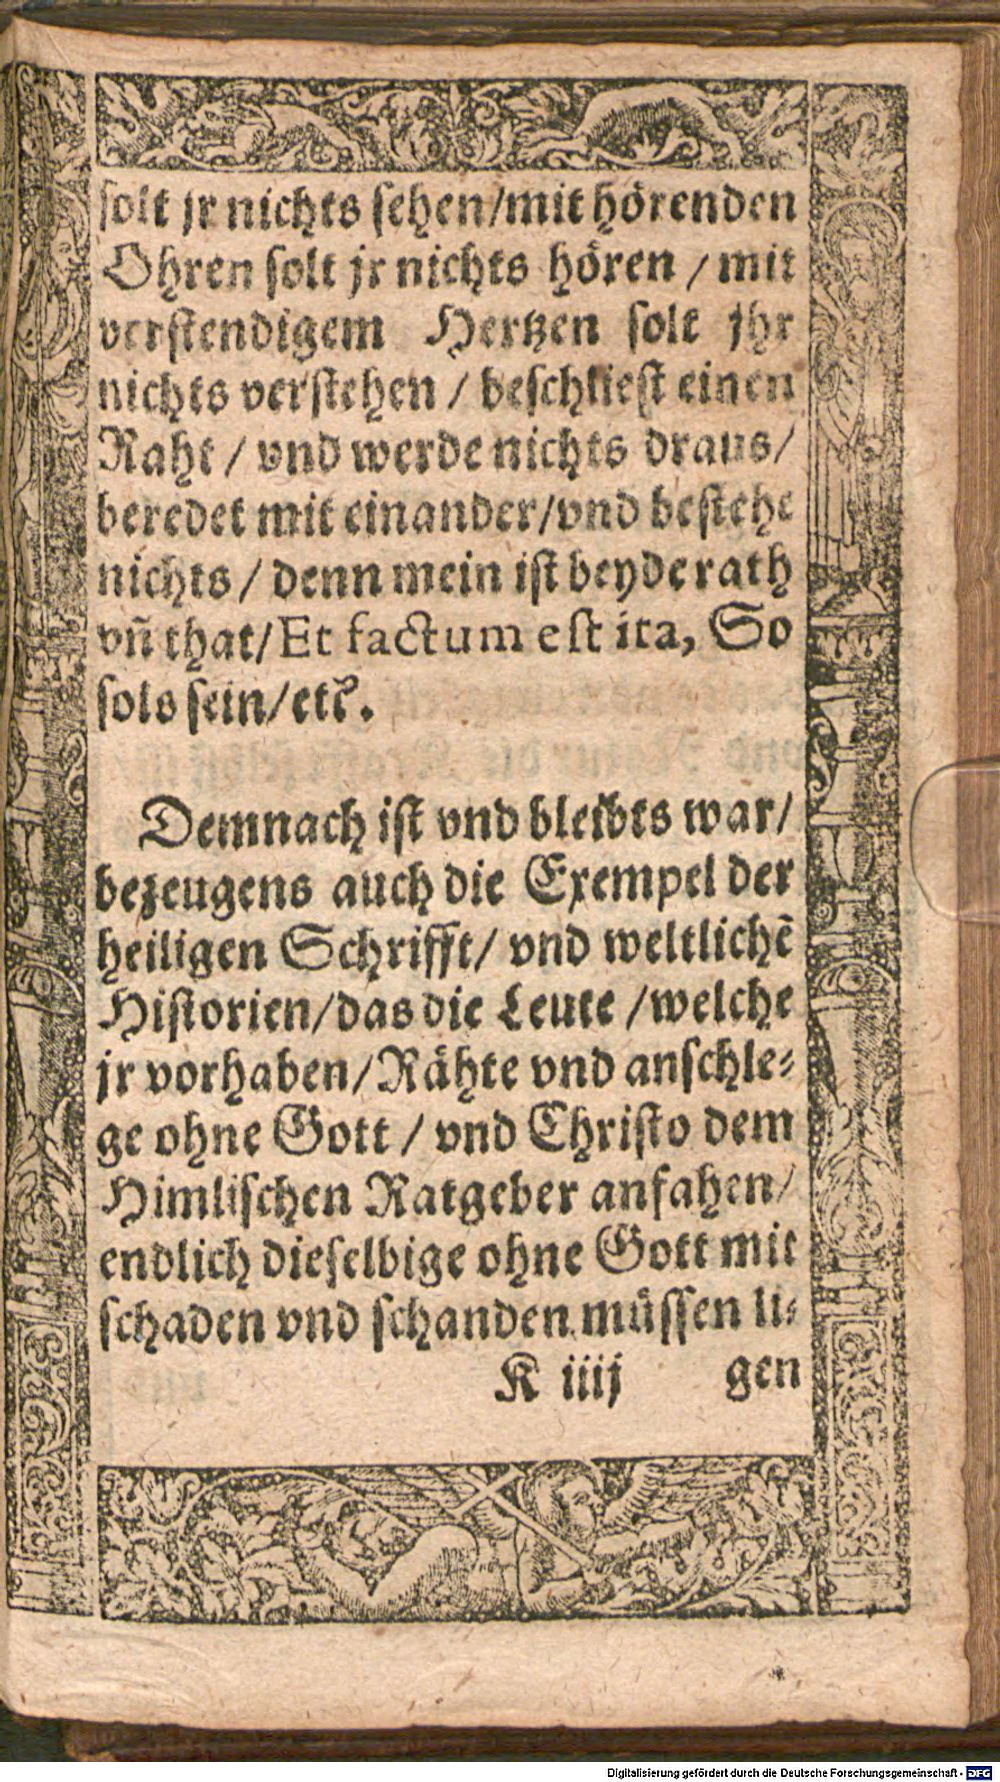 solt jr nichts sehen/mit hörenden
Ohren solt jr nichts hören / mit
verstendigem Hertzen solt jhr
nichts verstehen / beschliest einen
Raht / vnd werde nichts draus/
beredet mit einander/vnd bestehe
nichts / denn mein ist beyde rath
vñ that/Et factum est ita, So
sols sein/etc.
Demnach ist vnd bleibts war/
bezeugens auch die Exempel der
heiligen Schrifft/ vnd weltlichẽ
Historien/das die Leute /welche
jr vorhaben/Rähte vnd anschle⸗
ge ohne Gott / vnd Christo dem
Himlischen Ratgeber anfahen/
endlich dieselbige ohne Gott mit
schaden vnd schanden müssen li⸗
K iiij gen
Digitalisierung gefördert durch die Deutsche Forschungsgemeinschaft - DFG